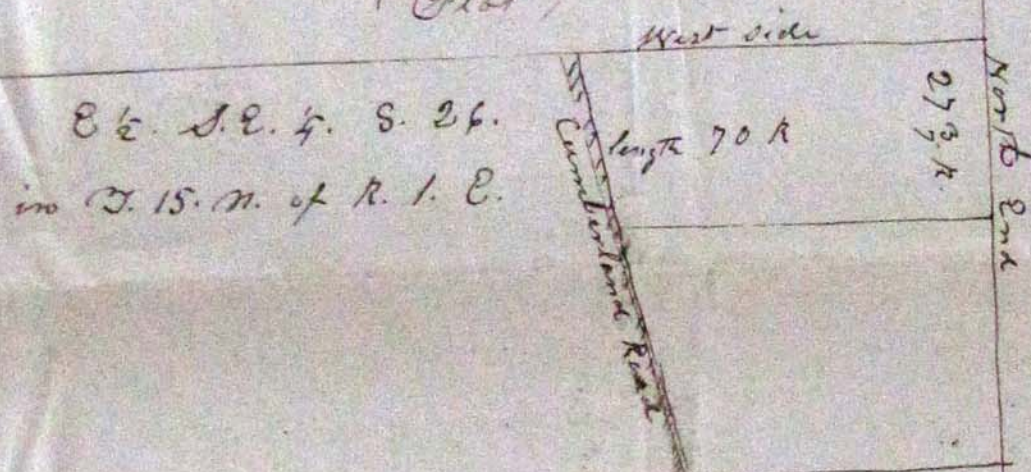 (Plat)
West side
E ½. S.E. ¼. S. 26.
in T. 15. N. of R. 1. E.
Cumberland Road
length 70 R
27 3/7 R.
North End